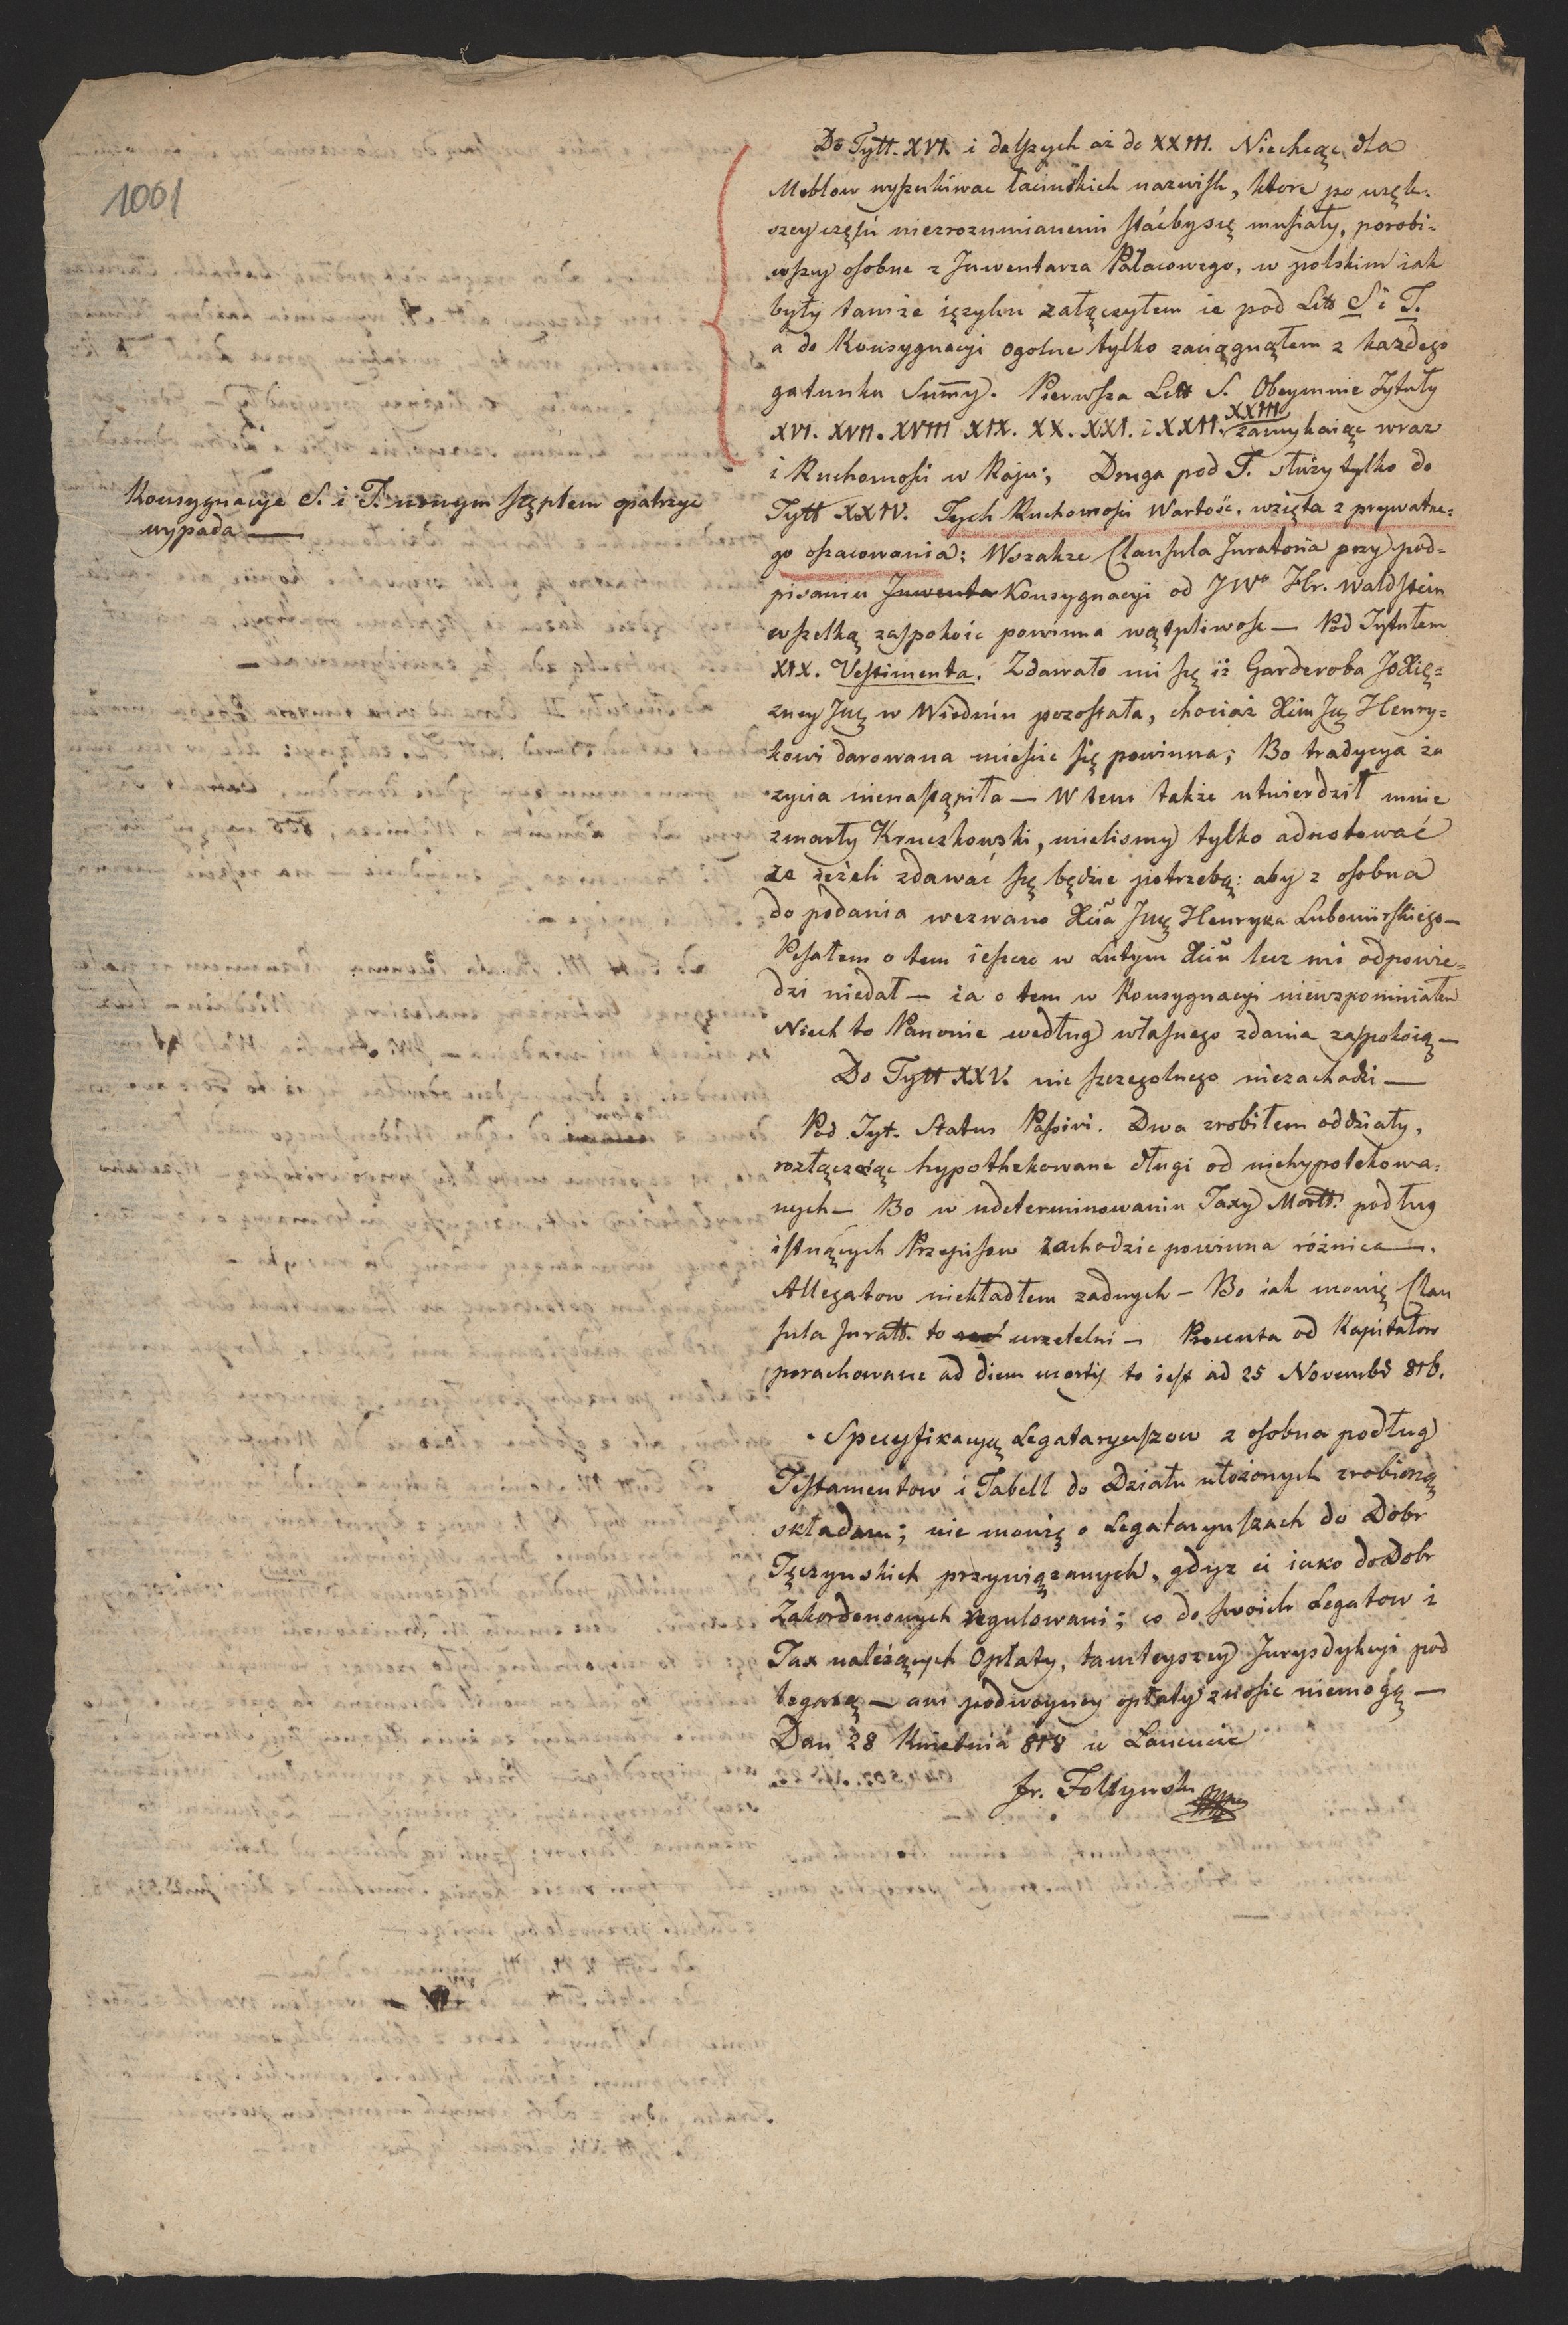 1001
Do Tytt. XVI. i dalszych aż do XXIII. Niechcąc dla
Meblow wyszukiwac łacinskich nazwisk, ktore po więk=
szey częsci niezrozumianemi stać by się musiały, porobi=
wszy osobne z Inwentarza Pałacowego, w polskim iak
były tamże ięzyku załączyłem ie pod Litt S i T.
a do Konsygnacyi ogolne tylko zaciągnąłem z każdego
gatunku Summy. Pierwsza Litt S. Obeymuie Tytuły
XVI. XVII. XVIII XIX. XX. XXI. i XXII. XXIII zamykaiąc wraz
i Ruchomosci w Raju; Druga pod T. służy tylko do
Konsygnacye S. i T. uonym stęplem opatrzyc
wypada —
Tytt XXIV. Tych Ruchomosci Wartość, wzięta z prywatne=
go oszacowania: Wszakze Clausula Juratoria przy pod=
pisaniu Inwenta Konsygnacyi od JWo Hr. Waldstein
wszelką zaspokoić powinna wątpliwosc — Pod Tytułem
XIX. Vestimenta. Zdawało mi się iż Garderoba JOXię=
zney Jmę w Wiedniu pozostała, chociaż Xciu Ję Henry=
kowi darowana miescic się powinna; Bo tradycya za
zycia nienastąpiła — W tem także utwierdził mnie
zmarły Kruczkowski, mielismy tylko adnotować
ze ieżeli zdawać się będzie potrzebą: aby z osobna
do podania wezwano Xcia Jmę Henryka Lubomirskiego —
Pisałem o tem ieszcze w Lutym Xciu lecz mi odpowie=
dzi niedał — ia o tem w Konsygnacyi niewspominiałem
Niech to Panowie według własnego zdania zaspokoią —
Do Tytt XXV. nic szczegolnego niezachodzi —
Pod Tyt. Status Passivi. Dwa zrobiłem oddziały,
rozłączaiąc hypothekowane długi od niehypotekowa=
nych — Bo w udeterminowaniu Taxy Mortt. podług
istnących Przepisow zachodzic powinna różnica —.
Allegatow niekładłem zadnych — Bo iak mowię Clau
sula Juratt. to urzetelni — Procenta od Kapitałow
porachowane ad diem mortis to iest ad 25 Novembr 816.
Specyfikacyą Legataryuszow z osobna podług
Testamentow i Tabell do Działu ułożonych zrobioną
składam; nie mowię o Legataryuszach do Dobr
Tęczynskich przywiązanych, gdyz ci iako do Dobr
Zakordonowych regulowani; co do swoich Legatow i
Tax należących Opłaty, tamteyszey Jurysdykcyi pod
legaią — ani podwoyney opłaty znosic niemogą —
Dan 28 Kwietnia 818 w Lancucie
Fr. Foltynski